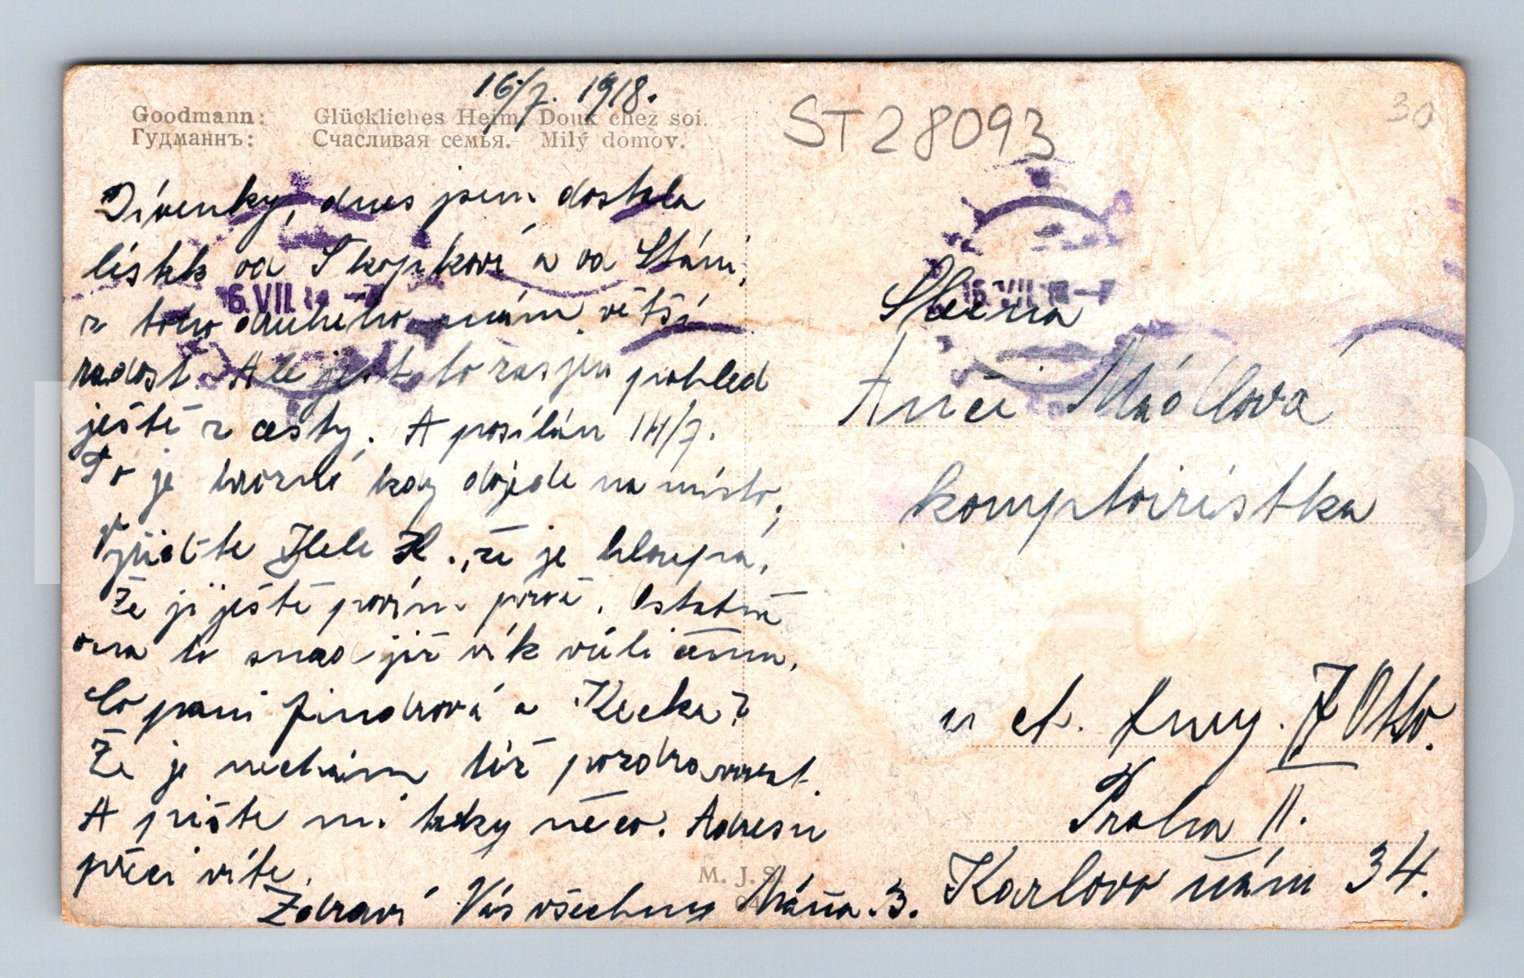 16/7. 1918.
Goodmann: Glückliches Heim. Doux chez soi.
Гудманнъ: Счасливая семья. Milý domov.
ST28093
30
Dívenky, dnes jsem dostala
lístek od Skopkové a od Stáni,
z toho druhého mám větší
radost. Ale jest to zasjen pohled
ještě z cesty. A posílán 14/7.
To je hrozné kdy dojede na místo,
Vyřiďte Hele H., že je hloupá,
Že jí ještě povím prvé. Ostatně
ona to snad již ví k vůli čemu,
Co paní Jindrová a Kecka?
Že je nechám též pozdravovat.
A pište mi taky něco. Adresu
přeci víte.
Zdraví Vás všechny Máňa.3.
M. J. S.
6.VII.18-7
16.VII.18-7
Slečna
Anči Mádlová
komptoiristka
u ct. firmy. J Otto.
Praha II.
Karlovo nám 34.